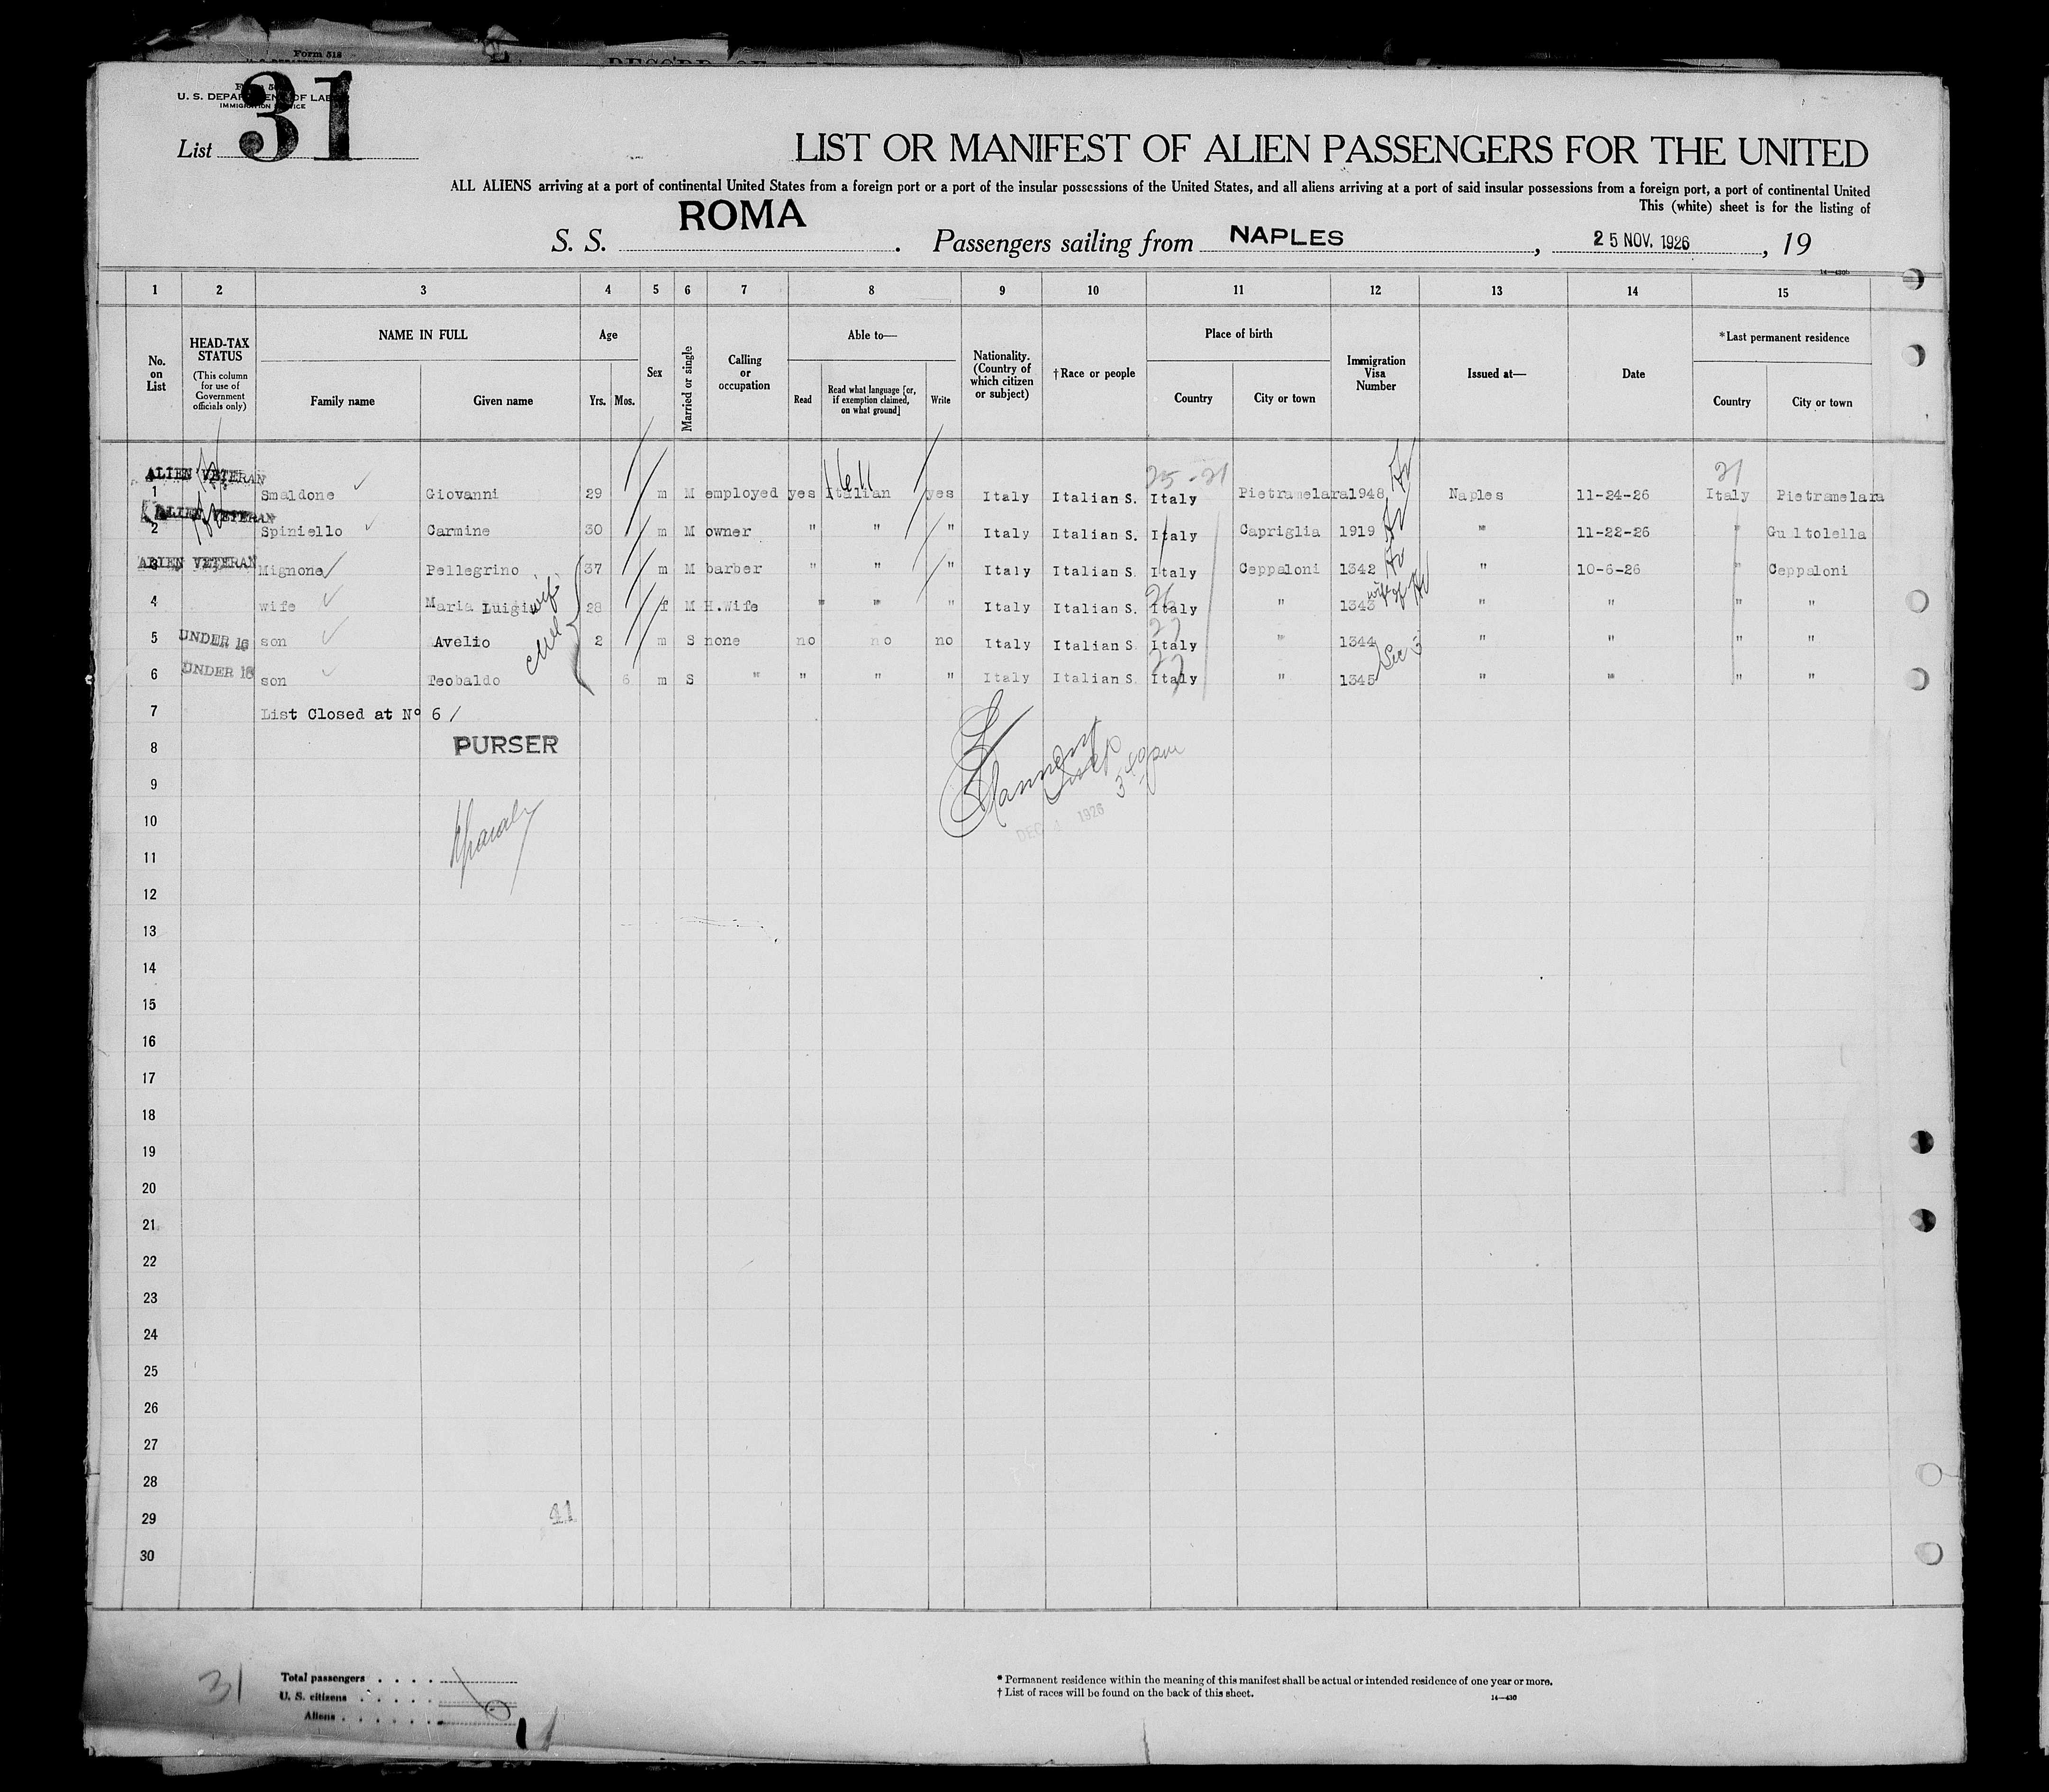 Form 518
31
U. S. DEPARTMENT OF LABOR
IMMIGRATION SERVICE
List
LIST OR MANIFEST OF ALIEN PASSENGERS FOR THE UNITED
ALL ALIENS arriving at a port of continental United States from a foreign port or a port of the insular possessions of the United States, and all aliens arriving at a port of said insular possessions from a foreign port, a port of continental United
This (white) sheet is for the listing of
S. S. ROMA . Passengers sailing from NAPLES , 25 NOV. 1926 , 19
14—430b
1 2 3 4 5 6 7 8 9 10 11 12 13 14 15
No. on List
HEAD-TAX STATUS
(This column for use of Government officials only)
NAME IN FULL
Family name
Given name
Age
Yrs. Mos.
Sex
Married or single
Calling or occupation
Able to—
Read
Read what language [or, if exemption claimed, on what ground]
Write
Nationality. (Country of which citizen or subject)
†Race or people
Place of birth
Country
City or town
Immigration Visa Number
Issued at—
Date
*Last permanent residence
Country
City or town
25-21 21
ALIEN VETERAN
1 Smaldone Giovanni 29 m M employed yes Italian yes Italy Italian S. Italy Pietramelara 1948 Naples 11-24-26 Italy Pietramelara
ALIEN VETERAN
2 Spiniello Carmine 30 m M owner " " " Italy Italian S. Italy Capriglia 1919 " 11-22-26 " Gultolella
3 ALIEN VETERAN Mignone Pellegrino 37 m M barber " " " Italy Italian S. Italy Ceppaloni 1342 " 10-6-26 " Ceppaloni
4 wife Maria Luigia wife 28 f M H.Wife " " " Italy Italian S. Italy " 1343 wife of " " " "
5 UNDER 16 son Avelio 2 m S none no no no Italy Italian S. Italy " 1344 " " " "
6 UNDER 16 son Teobaldo 6 m S " " " " Italy Italian S. Italy " 1345 Sec 3 " " " "
7 List Closed at Nº 6 /
8 PURSER
9
10 DEC 1926
11
12
13
14
15
16
17
18
19
20
21
22
23
24
25
26
27
28
29 41
30
31
Total passengers
U. S. citizens
Aliens
* Permanent residence within the meaning of this manifest shall be actual or intended residence of one year or more.
† List of races will be found on the back of this sheet.
14—430